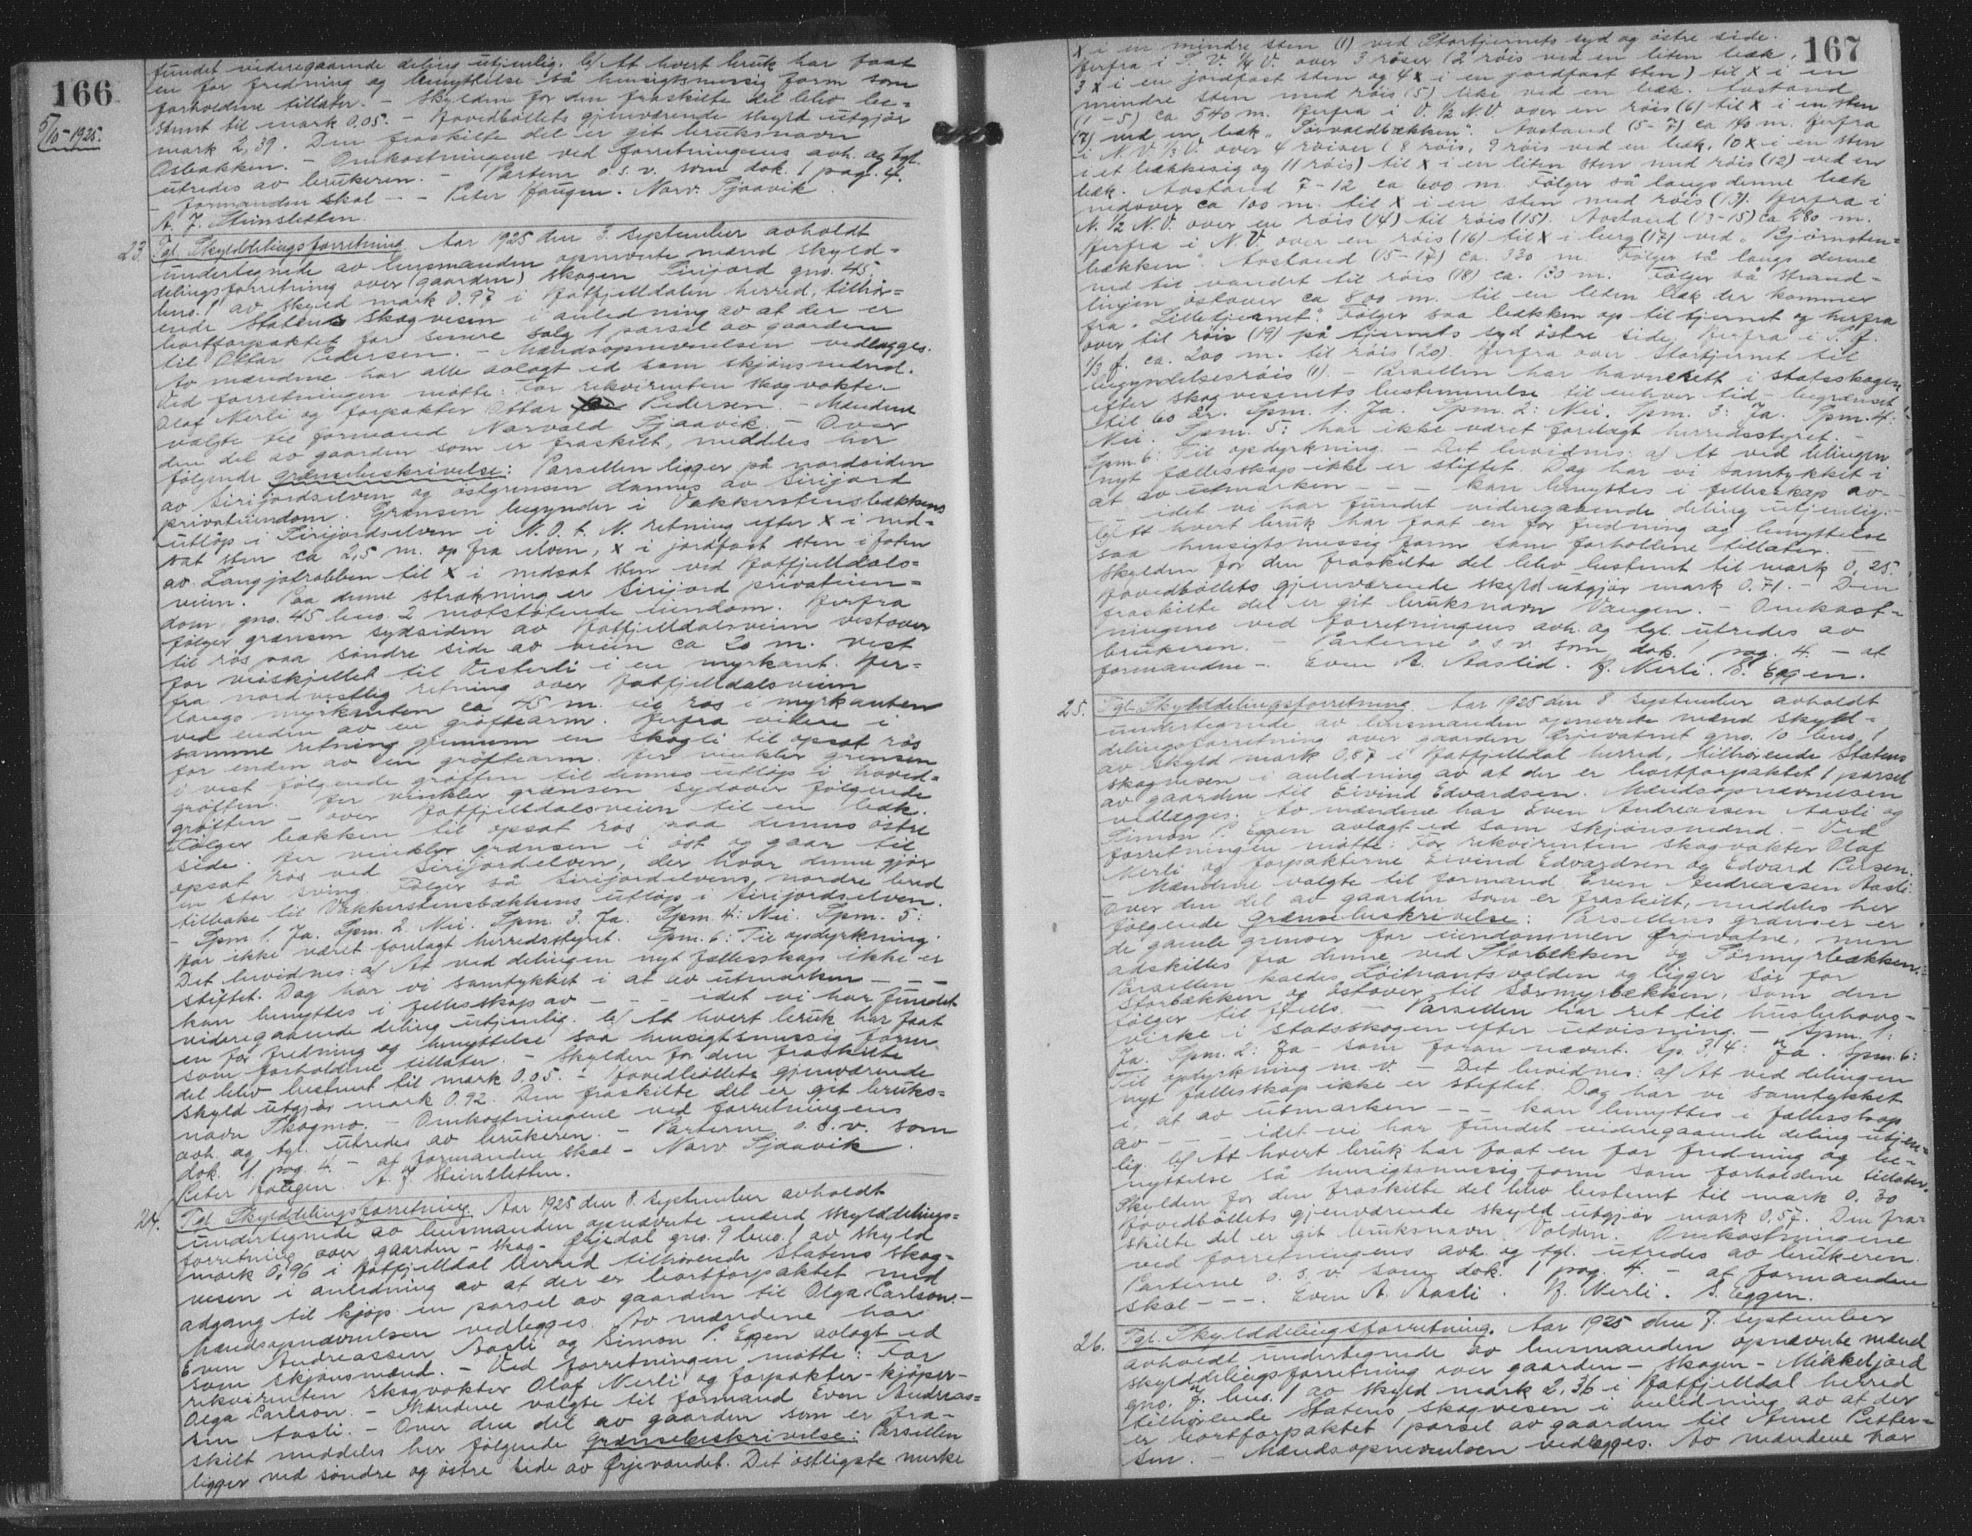 166
5/10-1925.
fundet videregaaende deling utjenlig. b/ At hvert bruk har faat
en for fredning og benyttelse så hensigtsmessig form som
forholdene tillater. - Skylden for den fraskilte del blev be=
stemt til mark 0.05. - Hovedbøllets gjenværende skyld utgjør
mark 2,39. Den fraskilte del er git bruksnavn
Osbakken. - Omkostningene ved forretningens avh. og tgl.
utredes av brukeren. - Partene o.s.v. som dok. 1 pag. 4.
- formanden skal - - Peter Haugen. Narv. Tjaavik.
A. J. Steinsletten.
23. Tgl. Skylddelingsforretning. Aar 1925 den 3. september avholdt
undertegnede av lensmanden opnevnte mænd skyld=
delingsforretning over (gaarden) skogen Sirijord gno. 45.
bno. 1 av skyld mark 0.97 i Hatfjelldalen herred, tilhør=
ende Statens skogvesen i anledning av at der er
bortforpaktet for senere salg 1 parsel av gaarden
til Ottar Pedersen. - Mændsopnevnelsen vedlægges.
Av mændene har alle avlagt ed som skjønsmænd.
Ved forretningen møtte: For rekvirenten skogvokte-
Olaf Nerli og forpakter Ottar Pedersen. - Mændene
valgte til formand Narvald Tjaavik. - Over
den del av gaarden som er fraskilt, meddeles her
følgende grænsebeskrivelse: Parsellen ligger på nordsiden
av Sirijordselven og østgrensen dannes av Sirijord
privateiendom. Grænsen begynder i Vakkerstensbækkens
utløp i Sirijordselven i N. O. t. N. retning efter X i ned=
sat sten ca 2,5 m. op fra elven, X i jordfast sten i foten
av Langjolrabben til X i nedsat sten ved Hatfjelldals=
veien. Paa denne strækning er Sirijord privateien=
dom, gno. 45 bno. 2 motstøtende eiendom. Herfra
følger grænsen sydsiden av Hatfjelldalsveien vestover
til rös paa søndre side av veien ca 20 m. vest
for veiskjellet til Vesterli i en myrkant. Her=
fra nordvestlig retning over Hatfjelldalsveien
langs myrkanten ca 45 m. til rös i myrkanten
ved enden av en grøftearm. Herfra videre i
samme retning gjennem en skogli til opsat rös
for enden av en grøftearm. Her vinkler grensen
i vest følgende grøften til dennes utløp i hoved=
grøften. Her vinkler grænsen sydover følgende
grøften - over Hatfjelldalsveien til en bæk.
Følger bækken til opsat rös paa dennes östre
side. Her vinkler grænsen i öst og gaar til
opsat rös ved Sirijordelven, der hvor denne gjör
en stor sving. Følger så Sirijordelvens nordre bred
tilbake til Vakkerstensbækkens utløp i Sirijordselven.
- Spm. 1. Ja. Spm. 2 Nei. Spm. 3. Ja. Spm. 4: Nei. Spm. 5:
har ikke været forelagt herredsstyret. Spm. 6: Til opdyrkning.
Det bevidnes: a/ At ved delingen nyt fællesskap ikke er
stiftet. Dog har vi samtykket i at av utmarken - - -
kan benyttes i fellesskap av - - - idet vi har fundet
videregaaende deling utjenlig. b/ At hvert bruk har faat
en for fredning og benyttelse saa hensigtsmessig form
som forholdene tillater. - Skylden for den fraskilte
del blev bestemt til mark 0.05. - Hovedbøllets gjenværende
skyld utgjør mark 0.92. Den fraskilte del er git bruks=
navn Skogmo. - Omkostningene ved forretningens
avh. og tgl. utredes av brukeren. - Parterne o.s.v. som
dok. 1 pag. 4. - at formanden skal - Narv Tjaavik
Peter Haugen. A. J Steinsletten.
24. Tgl. Skylddelingsforretning. Aar 1925 den 8. september avholdt
undertegnede av lensmanden opnævnte mænd skylddelings=
forretning over gaarden - skog - Ørjedal gno. 9 bno. 1 av skyld
mark 0,96 i Hatfjelldal herred tilhørende Statens skog=
vesen i anledning av at der er bortforpaktet med
adgang til kjøp en parsel av gaarden til Olga Carlson. -
Mændsopnævnelsen vedlegges. Av mændene har
Even Andreassen Aasli og Simon P. Eggen avlagt ed
som skjønsmænd. - Ved forretningen møtte: For
rekvirenten skogvokter Olaf Nerli og forpakter - kjøper -
Olga Carlson. - Mændene valgte til formand Even Andreas=
sen Aasli. - Over den del av gaarden som er fra=
skilt meddeles her følgende grænsebeskrivelse: Parsellen
ligger ved søndre og østre side av Ørjevandet. Det östligste merke
167
X i en mindre sten (1) ved Stortjernets syd og østre side.
Herfra i S. V. ¼ V. over 3 røiser (2 röis ved en liten bæk,
3 X i en jordfast sten og 4 X i en jordfast sten) til X i en
mindre sten med röis (5) like ved en bæk. Avstand
(1 - 5) ca 540 m. Herfra i V. ½ N.V. over en röis (6) til X i en sten
(7) ved en bæk "Torvaldbækken". Avstand (5 - 7) ca 140 m. Herfra
i N. V. ⅓ V. over 4 røiser (8 röis, 9 röis ved en bæk, 10 X i en sten
i et bækkesig og 11 röis) til X i en liten sten med röis (12) ved en
bæk. Avstand 7 - 12 ca 600 m. Følger så langs denne bæk
nedover ca 100 m. til X i en sten med röis (13). Herfra i
N. ½ N.V. over en röis (14) til röis (15). Avstand (13 - 15) ca 280 m.
Herfra i N. V. over en röis (16) til X i berg (17) ved "Björnsten=
bækken". Avstand (15 - 17) ca. 330 m. Følger så langs denne
ned til vandet til röis (18) ca. 130 m. Følger så strand=
linjen østover ca 800 m. til en liten bæk der kommer
fra "Litletjernet". Følger saa bækken op til tjernet og herfra
over til röis (19) på tjernets syd östre side. Herfra i S. Ø.
⅓ Ø. ca. 200 m. til röis (20). Herfra over Stortjernet til
begyndelsesröis (1). - Parsellen har havnerett i statsskogen
efter skogvesenets bestemmelse til enhver tid - begrenset
til 60 år. Spm. 1. Ja. Spm. 2: Nei. Spm. 3: Ja. Spm. 4:
Nei. Spm. 5: har ikke været forelagt herredsstyret. -
Spm. 6: Til opdyrkning. - Det bevidnes: a/ At ved delingen
nyt fællesskap ikke er stiftet. Dog har vi samtykket i
at av utmarken - - - kan benyttes i fellesskap av -
- - idet vi har fundet videregaaende deling utjenlig. -
b/ At hvert bruk har faat en for fredning og benyttelse
saa hensigtsmessig form som forholdene tillater. -
Skylden for den fraskilte del blev bestemt til mark 0,25.
Hovedbøllets gjenværende skyld utgjør mark 0.71. Den
fraskilte del er git bruksnavn Vangen. - Omkost=
ningene ved forretningens avh. og tgl. utredes av
brukeren. - Parterne o s v. som dok. 1 pag. 4 - at
formandene -. Even A. Aaslid. K. Nerli. S. Eggen.
25. Tgl. Skylddelingsforretning. Aar 1925 den 8 september avholdt
undertegnede av lensmanden opnævnte mænd skyld=
delingsforretning over gaarden Ørjevatnet gno. 10 bno. 1
av skyld mark 0,87 i Hatfjelldal herred, tilhørende Statens
skogvesen i anledning av at der er bortforpaktet 1 parsel
av gaarden til Eivind Edvardsen. Mændsopnævnelsen
vedlægges. Av mændene har Even Andreassen Aasli og
Simon P. Eggen avlagt ed som skjønsmænd - Ved
forretningen møtte: For rekvirenten skogvokter Olaf
Nerli og forpakterne Eivind Edvardsen og Edvard Persen.
- Mændene valgte til formand Even Andreassen Aasli.
Over den del av gaarden som er fraskilt, meddeles her
følgende grænsebeskrivelse: Parsellens grænser er
de gamle grenser for eiendommen Ørjevatne, men
adskilles fra denne ved Storbekken og Sørmyrbækken.
Parsellen kaldes Løitnantsvolden og ligger sør for
Storbækken og østover til Sørmyrbekken, som den
følger til fjells. - Parsellen har ret til husbehovs-
virke i statsskogen efter utvisning. - Spm. 1:
Ja. Spm. 2: Ja - som foran nævnt. Sp. 3, 4: Ja. Spm. 6:
Til opdyrkning m. v. - Det bevidnes: a/ At ved delingen
nyt fællesskap ikke er stiftet. Dog har vi samtykket
i, at av utmarken - - - kan benyttes i fællesskap
av - - - idet vi har fundet videregaaende deling utjen=
lig. b/ At hvert bruk har faat en for fredning og be=
nyttelse så hensigtsmessig form som forholdene tillater.
Skylden for den fraskilte del blev bestemt til mark 0.30
Hovedbøllets gjenværende skyld utgjör mark 0.57. Den fra=
skilte del er git bruksnavn Volden. Omkostningene
ved forretningens avh. og tgl. utredes av brukeren.
Parterne o. s. v. som dok. 1 pag. 4. - at formandene
skal - - -. Even A. Aasli. K. Nerli. S. Eggen.
26. Tgl. Skylddelingsforretning. Aar 1925 den 7. september
avholdt undertegnede av lensmanden opnævnte mænd
skylddelingsforretning over gaarden - skogen - Mikkeljord
gno. 7. bno. 1 av skyld mark 2,36 i Hatfjelldal herred
tilhørende Statens skogvesen i anledning av at der
er bortforpaktet 1 parsel av gaarden til Anne Petter=
sen. - Mændsopnevnelsen vedlegges. Av mændene har